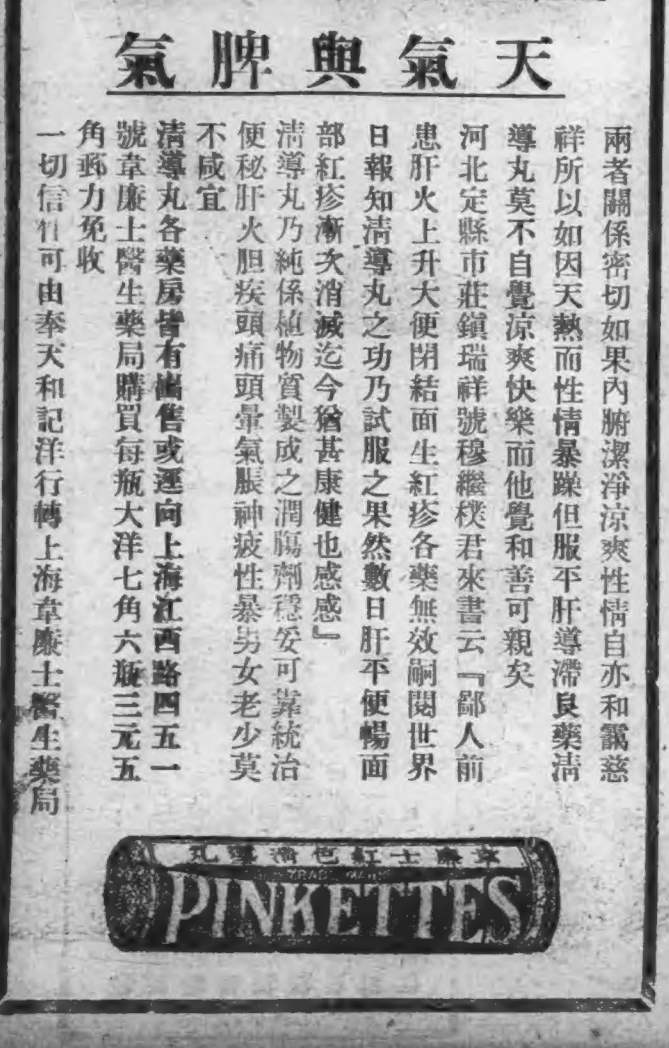 天氣與脾氣
兩者關係密切如果內腑潔淨涼爽性情自亦和靄慈
祥所以如因天熱而性情暴躁但服平肝導滯良藥清
導丸莫不自覺涼爽快樂而他覺和善可親矣
河北定縣市莊鎭瑞祥號穆繼樸君來書云『鄙人前
患肝火上升大便閉結面生紅疹各藥無效嗣閱世界
日報知清導丸之功乃試服之果然數日肝平便暢面
部紅疹漸次消滅迄今猶甚康健也感感』
清導丸乃純係植物質製成之潤腸劑穩妥可靠統治
便秘肝火胆疾頭痛頭暈氣脹神疲性暴男女老少莫
不咸宜
清導丸各藥房皆有出售或逕向上海江西路四五一
號韋廉士醫生藥局購買每瓶大洋七角六瓶三元五
角郵力免收
一切信件可由奉天和記洋行轉上海韋廉士醫生藥局
韋廉士紅色清導丸
TRADE MARK
PINKETTES